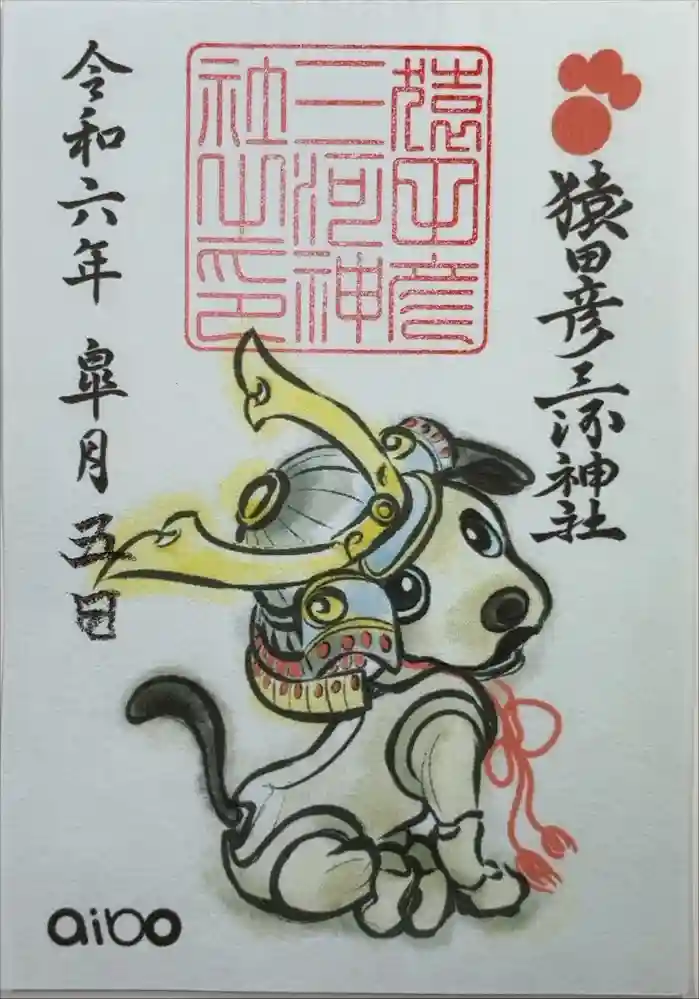 猿田彦三河神社
猿田彦
三河神
社之印
令和六年 皐月 五日
aibo